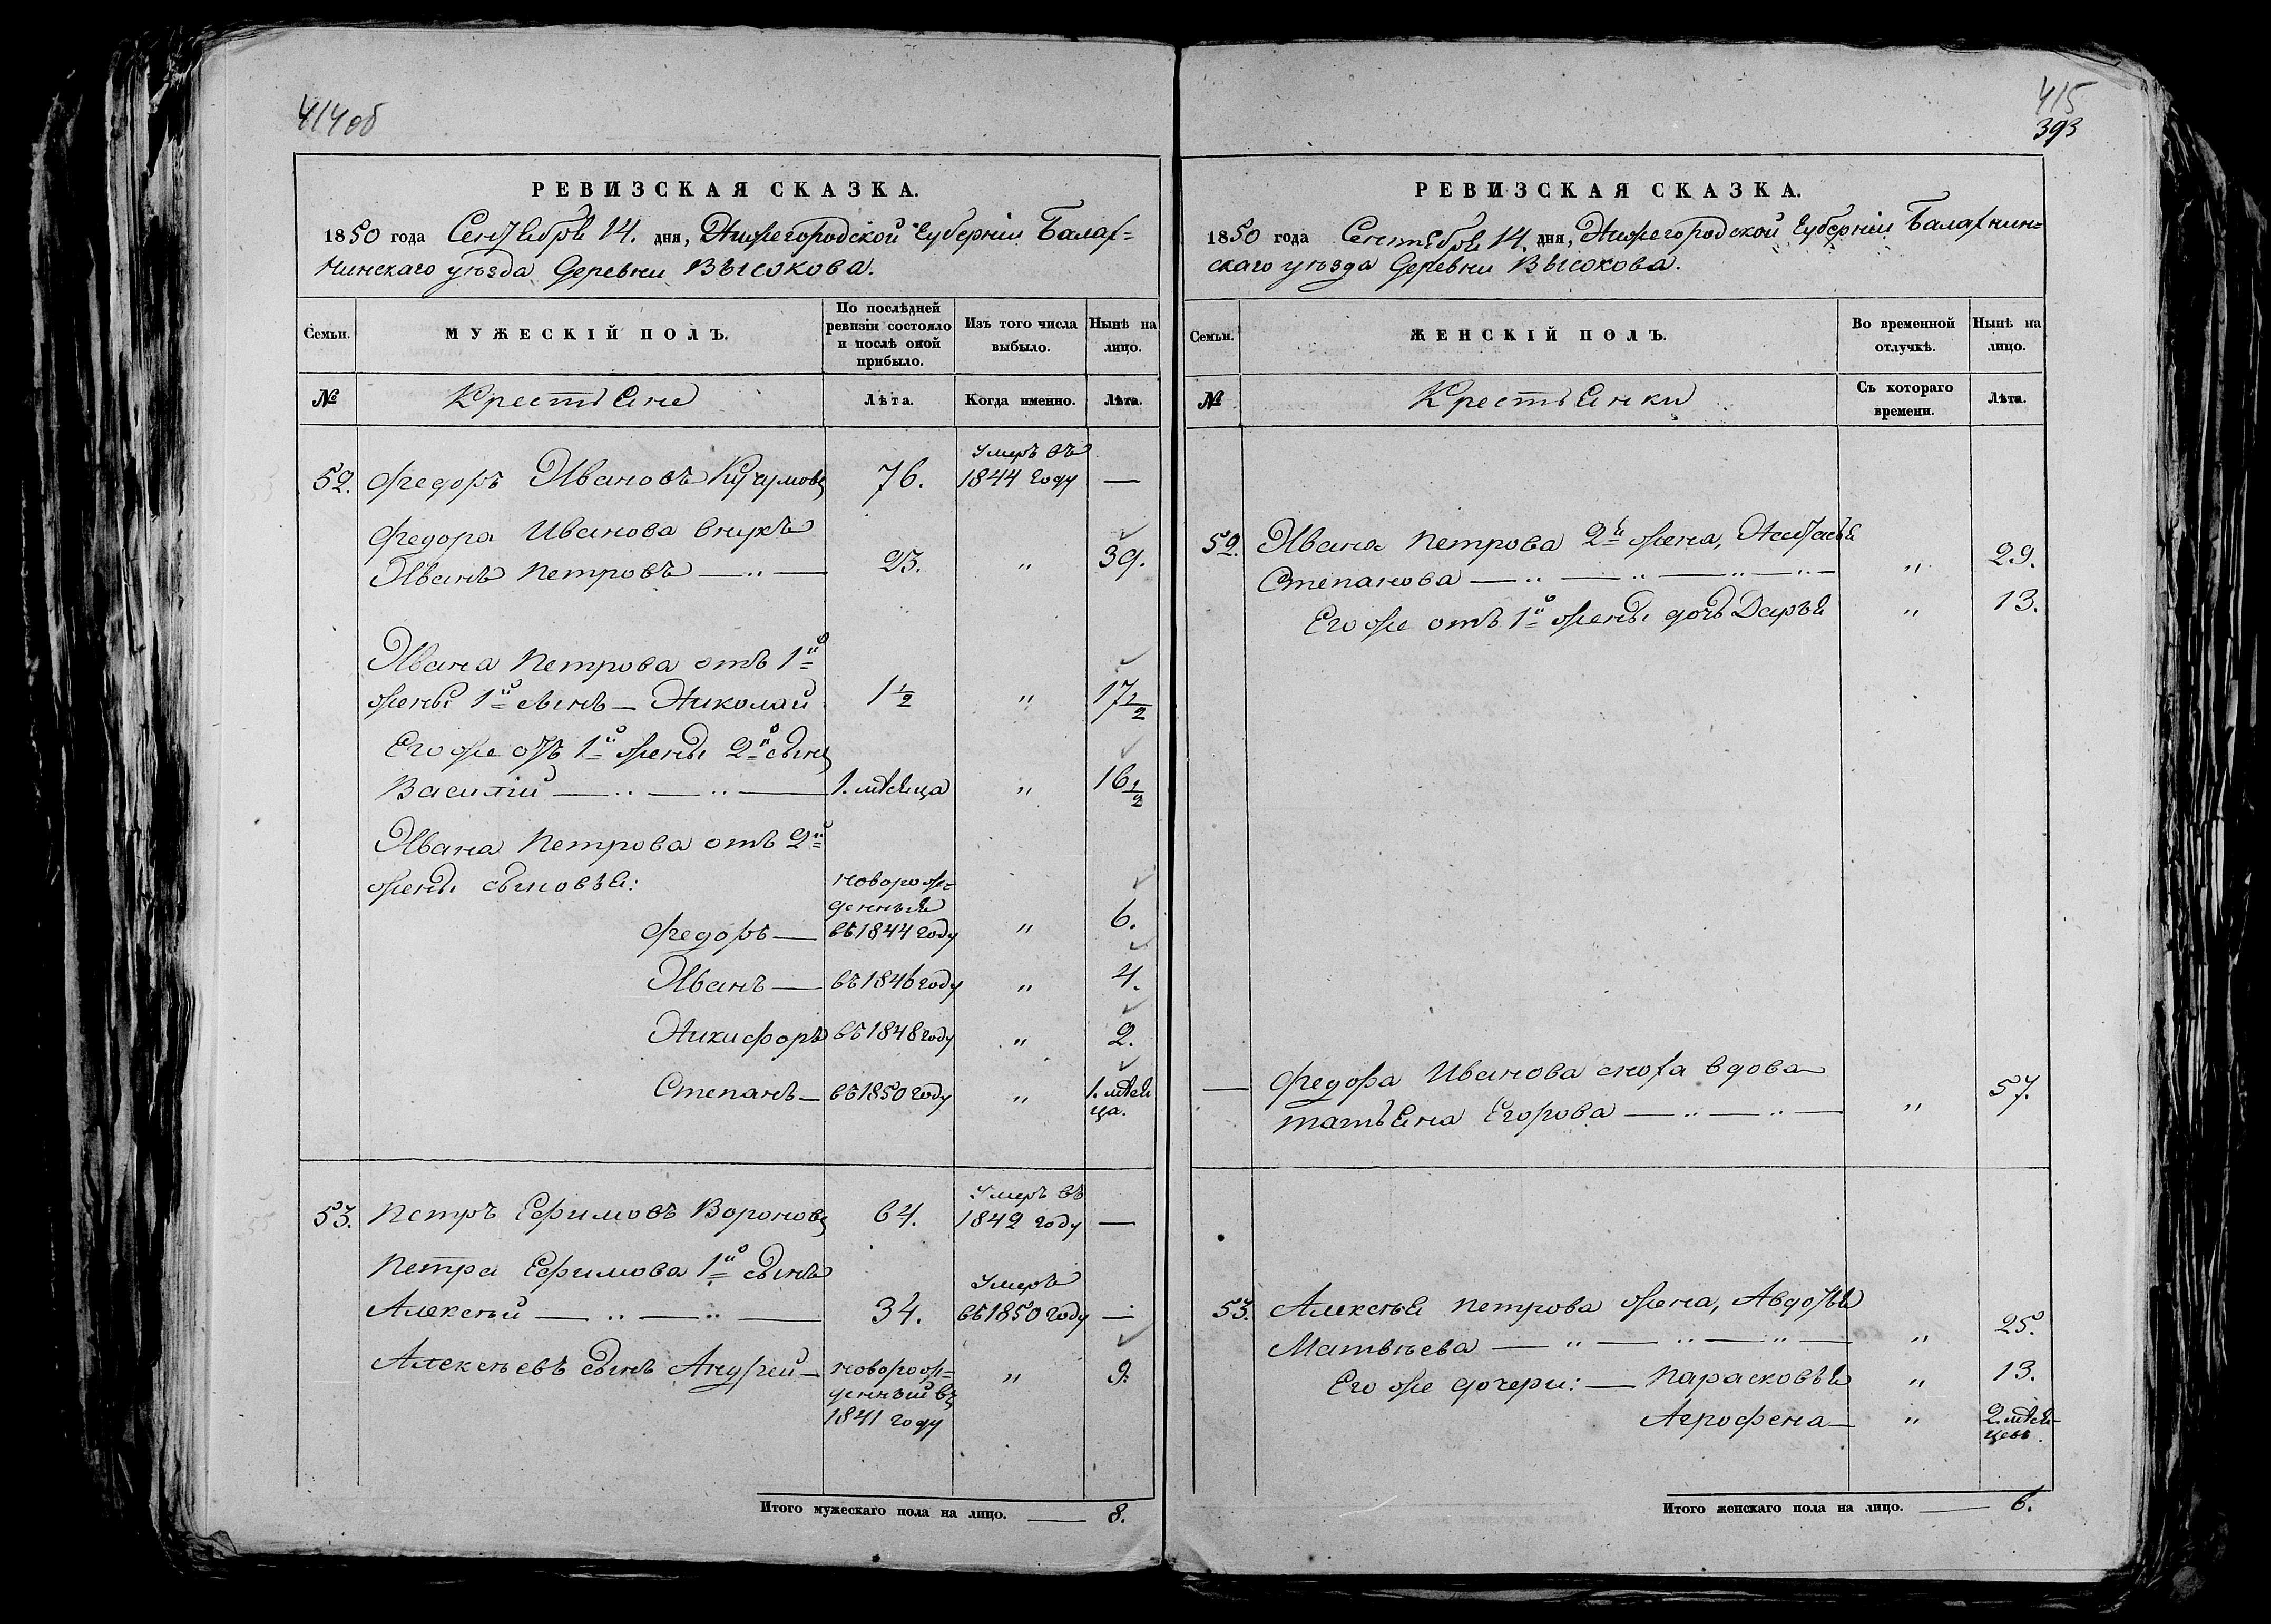 414об
РЕВИЗСКАЯ СКАЗКА.
1850 года Сентября 14. дня, Нижегородской Губерніи Балах=
нинскаго уѣзда Деревни Высокова.
Семьи. МУЖЕСКІЙ ПОЛЪ. По послѣдней ревизіи состояло и послѣ оной прибыло. Изъ того числа выбыло. Нынѣ на лицо.
№ Крестьяне Лѣта. Когда именно. Лѣта.
52. Федоръ Ивановъ Кучумовъ 76. Умеръ въ 1844 году —
Федора Иванова внукъ
Иванъ Петровъ — „ — 23. „ 39.
Ивана Петрова отъ 1й
жены 1й сынъ — Николай 1½ „ 17½
Его же отъ 1й жены 2й сынъ
Василій — „ — „ — 1. мѣсяца „ 16½
Ивана Петрова отъ 2й
жены сыновья:
Федоръ — новорож=
денный
въ 1844 году „ 6.
Иванъ — въ 1846 году „ 4.
Никифоръ въ 1848 году „ 2.
Степанъ — въ 1850 году „ 1. мѣся
ца.
53. Петръ Ефимовъ Вороновъ 64. Умеръ въ 1842 году —
Петра Ефимова 1й сынъ
Алексѣй — „ — „ — 34. Умеръ въ 1850 году —
Алексѣевъ сынъ Андрей — новорож=
денный въ
1841 году „ 9.
Итого мужескаго пола на лицо. — 8.
415
393
РЕВИЗСКАЯ СКАЗКА.
1850 года Сентября 14. дня, Нижегородской Губерніи Балахнин=
скаго уѣзда Деревни Высокова.
Семьи. ЖЕНСКІЙ ПОЛЪ. Во временной отлучкѣ. Нынѣ на лицо.
№ Крестьянки Съ котораго времени. Лѣта.
52. Ивана Петрова 2я жена, Настасья
Степанова — „ — „ — „ — „ — „ 29.
Его же отъ 1й жены дочь Дарья „ 13.
— Федора Иванова сноха вдова
Татьяна Егорова — „ — „ — „ 57.
53. Алексѣя Петрова жена, Авдотья
Матвѣева — „ — „ — „ — „ 25.
Его же дочери: — Парасковья „ 13.
Агрофена — „ 2. мѣся=
цевъ
Итого женскаго пола на лицо. — 6.